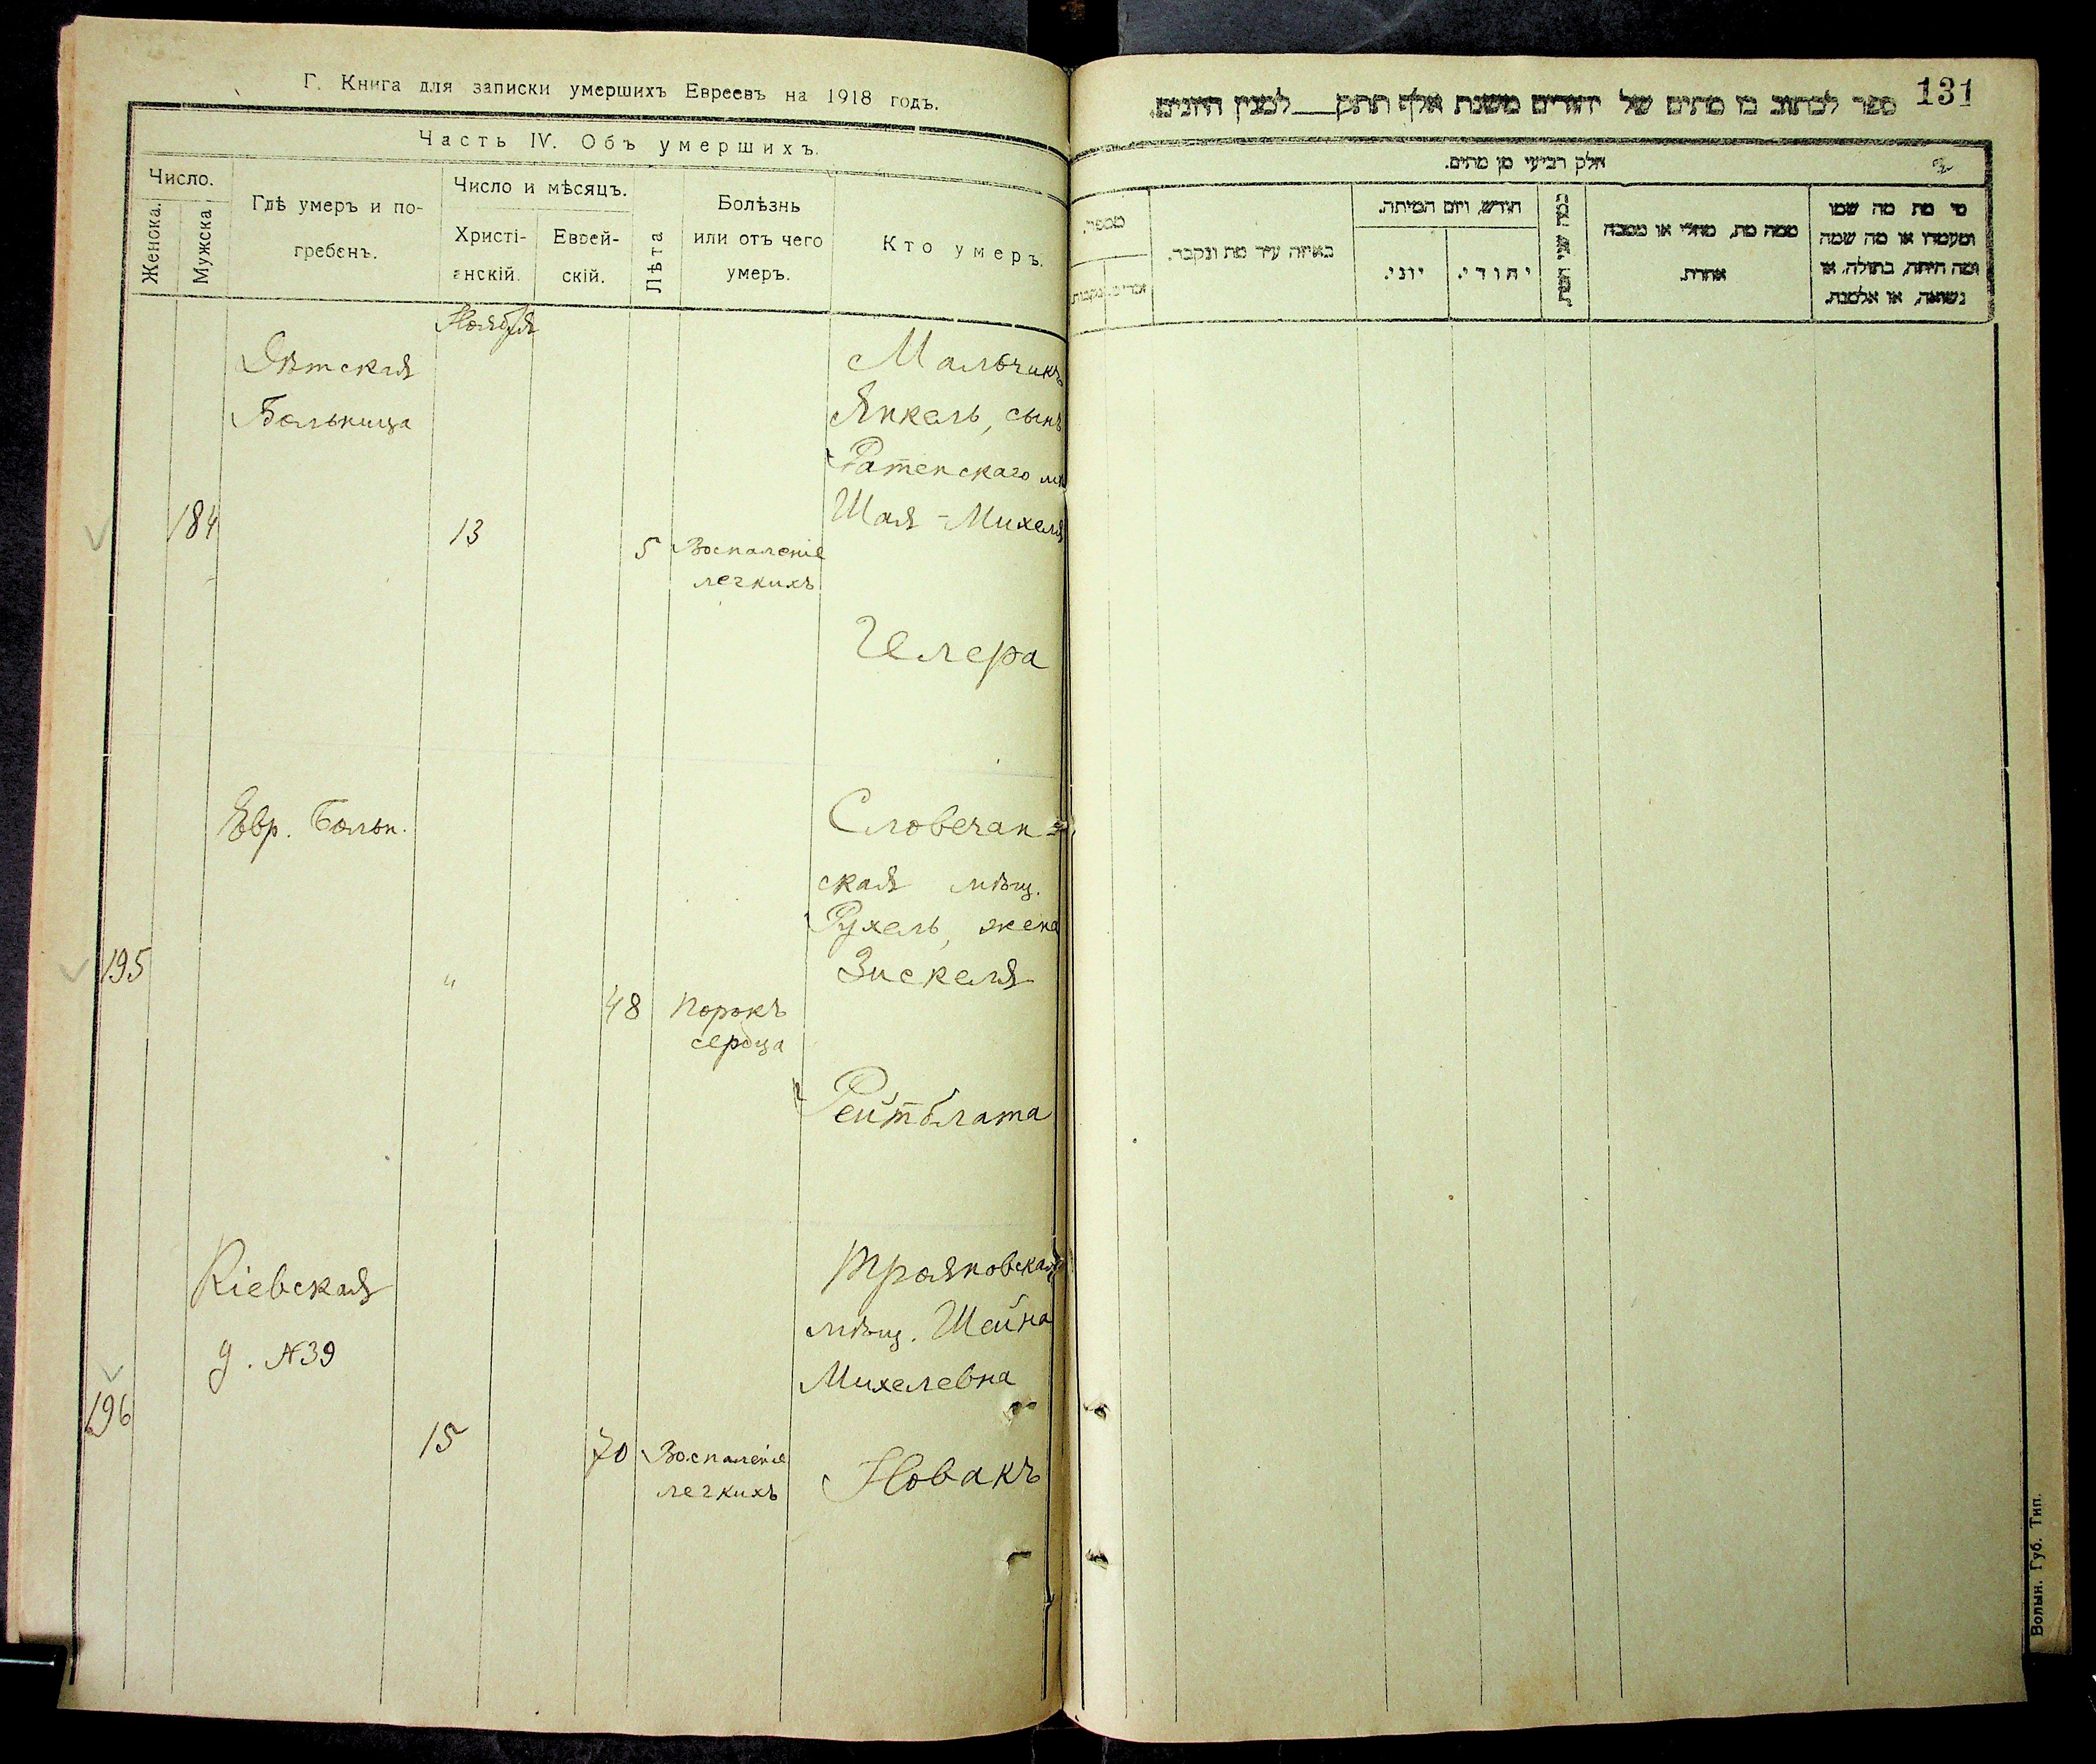 Г. Книга для записки умершихъ Евреевъ на 1918 годъ.
Часть IV. Объ умершихъ.
Число.
Женска.
Мужска
Гдѣ умеръ и по-
гребенъ.
Число и мѣсяцъ.
Христі-
анскій.
Еврей-
скій.
Лѣта
Болѣзнь
или отъ чего
умеръ.
Кто умеръ.
Ноября
Дѣтская
Больница
184
13
5
Воспаленіе
легкихъ
Мальчикъ
Янкель, сынъ
Ратенскаго мѣ
Шая-Михеля
Гелера
Евр. Больн.
195
"
48
Порокъ
сердца
Словечан-
ская мѣщ.
Рухель, жена
Зискеля
Рейтблата
Кіевская
д. №39
196
15
70
Воспаленіе
легкихъ
Трояновская
мѣщ. Шейна
Михелевна
Новакъ
131
ספר לכתוב בו מתים של יהודים משנת אלף תתק___למנין היונים.
חלק רביעי מן מתים.
מי מת מה שמו
ומעמדו או מה שמה
ומה היתה, בתולה, או
נשואה, או אלמנה.
ממה מת, מחלי או מסבה
אחרת.
כמה שני
חודש, ויום המיתה.
יהודי.
יוני.
באיזה עיר מת ונקבר.
מספר.
זכרים
נקבות
Волын. Губ. Тип.